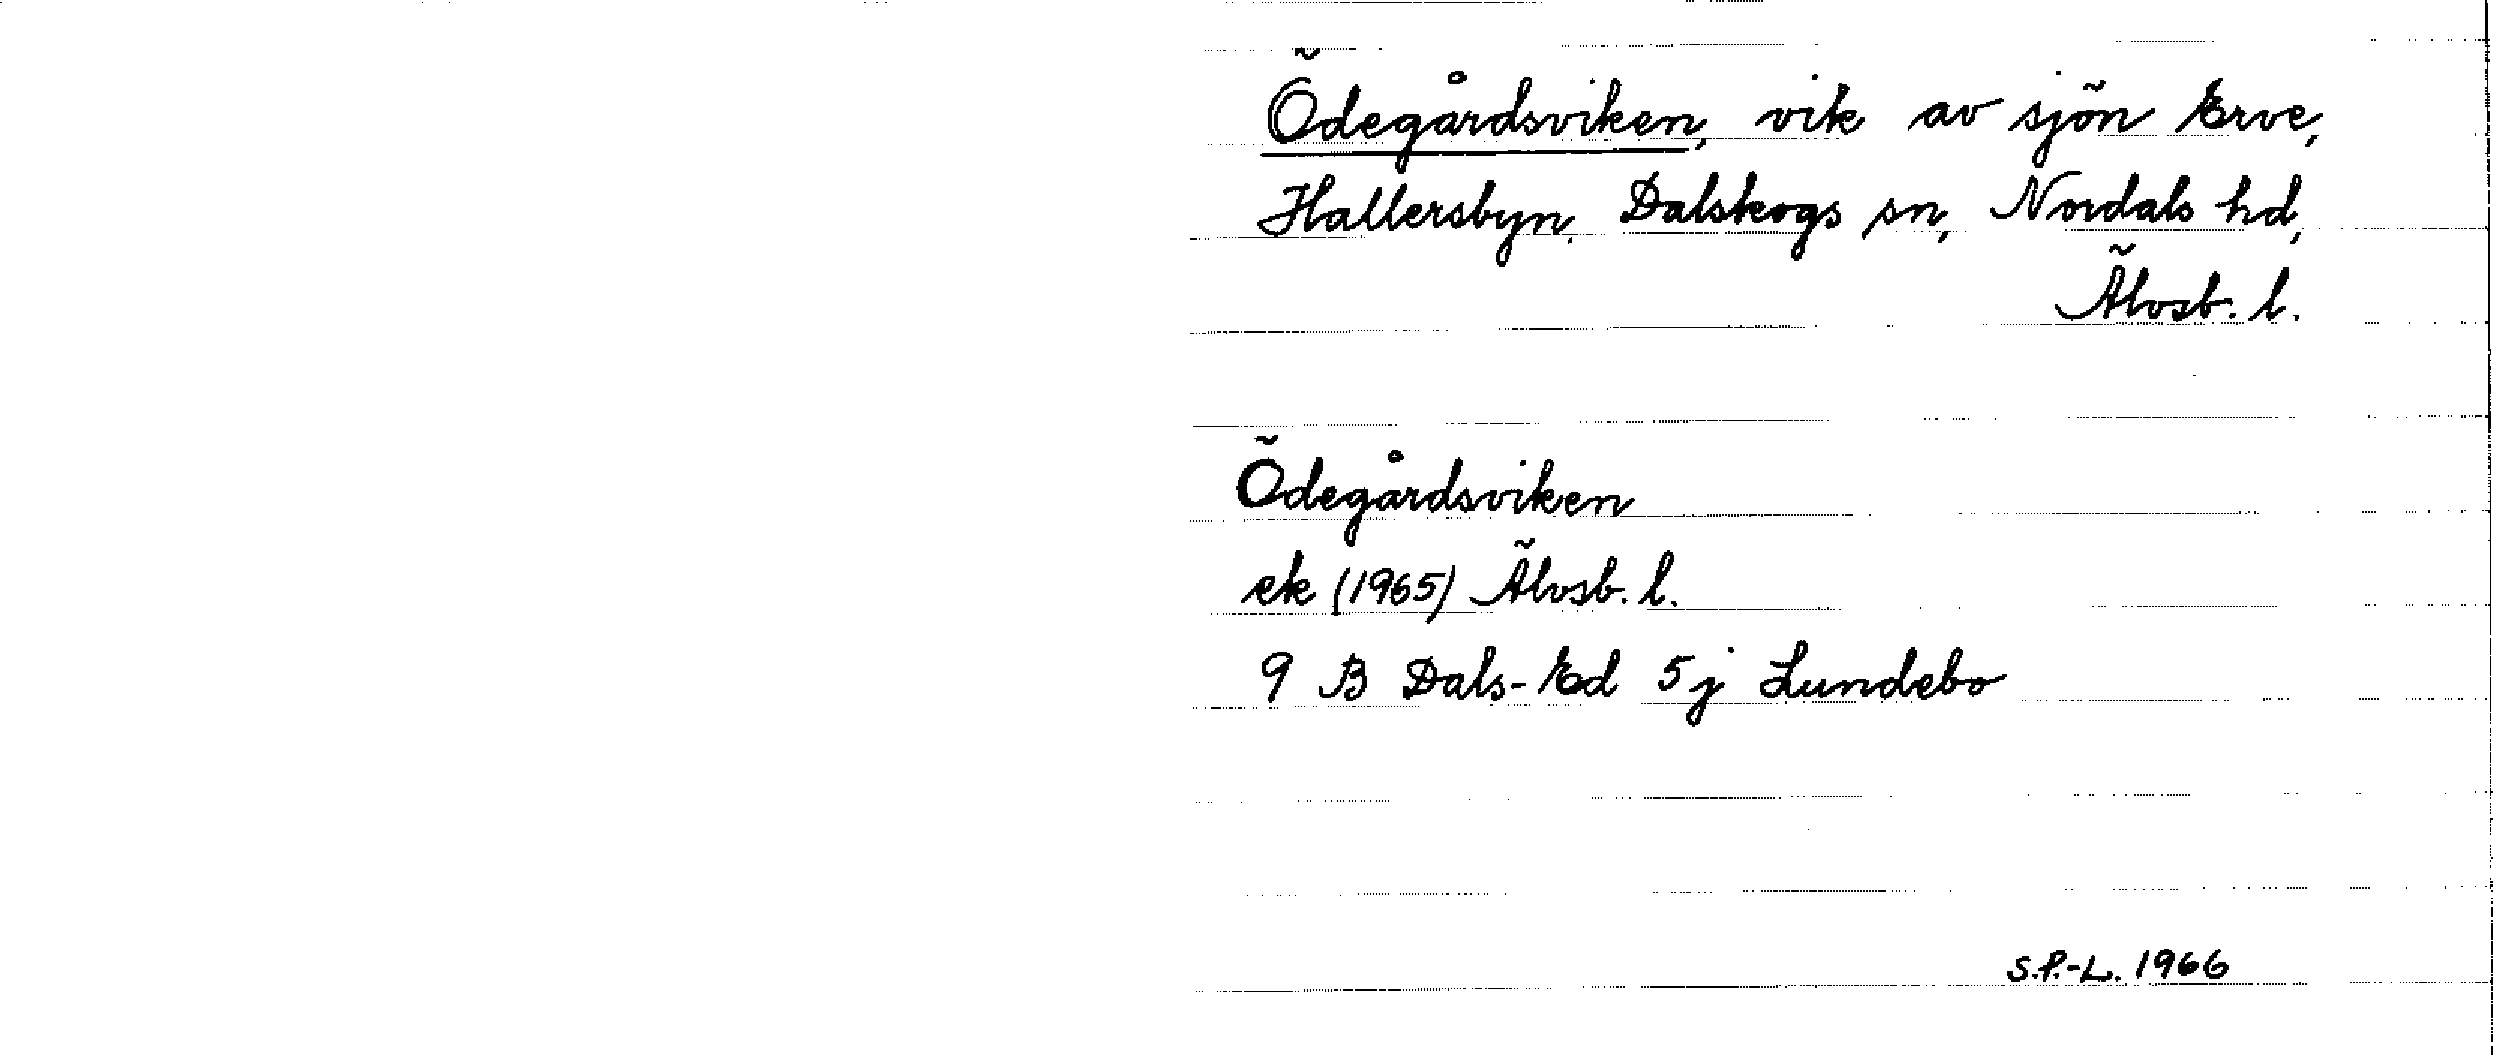 Ödegårdsviken, vik av sjön Erve,
Hallersbyn, Dalskogs sn, Nordals hd,
Älvsb. l.
Ödegårdsviken
ek (1965) Älvsb. l.
9 B Dals-Ed 5 j Lundebo
S.P.-L. 1966